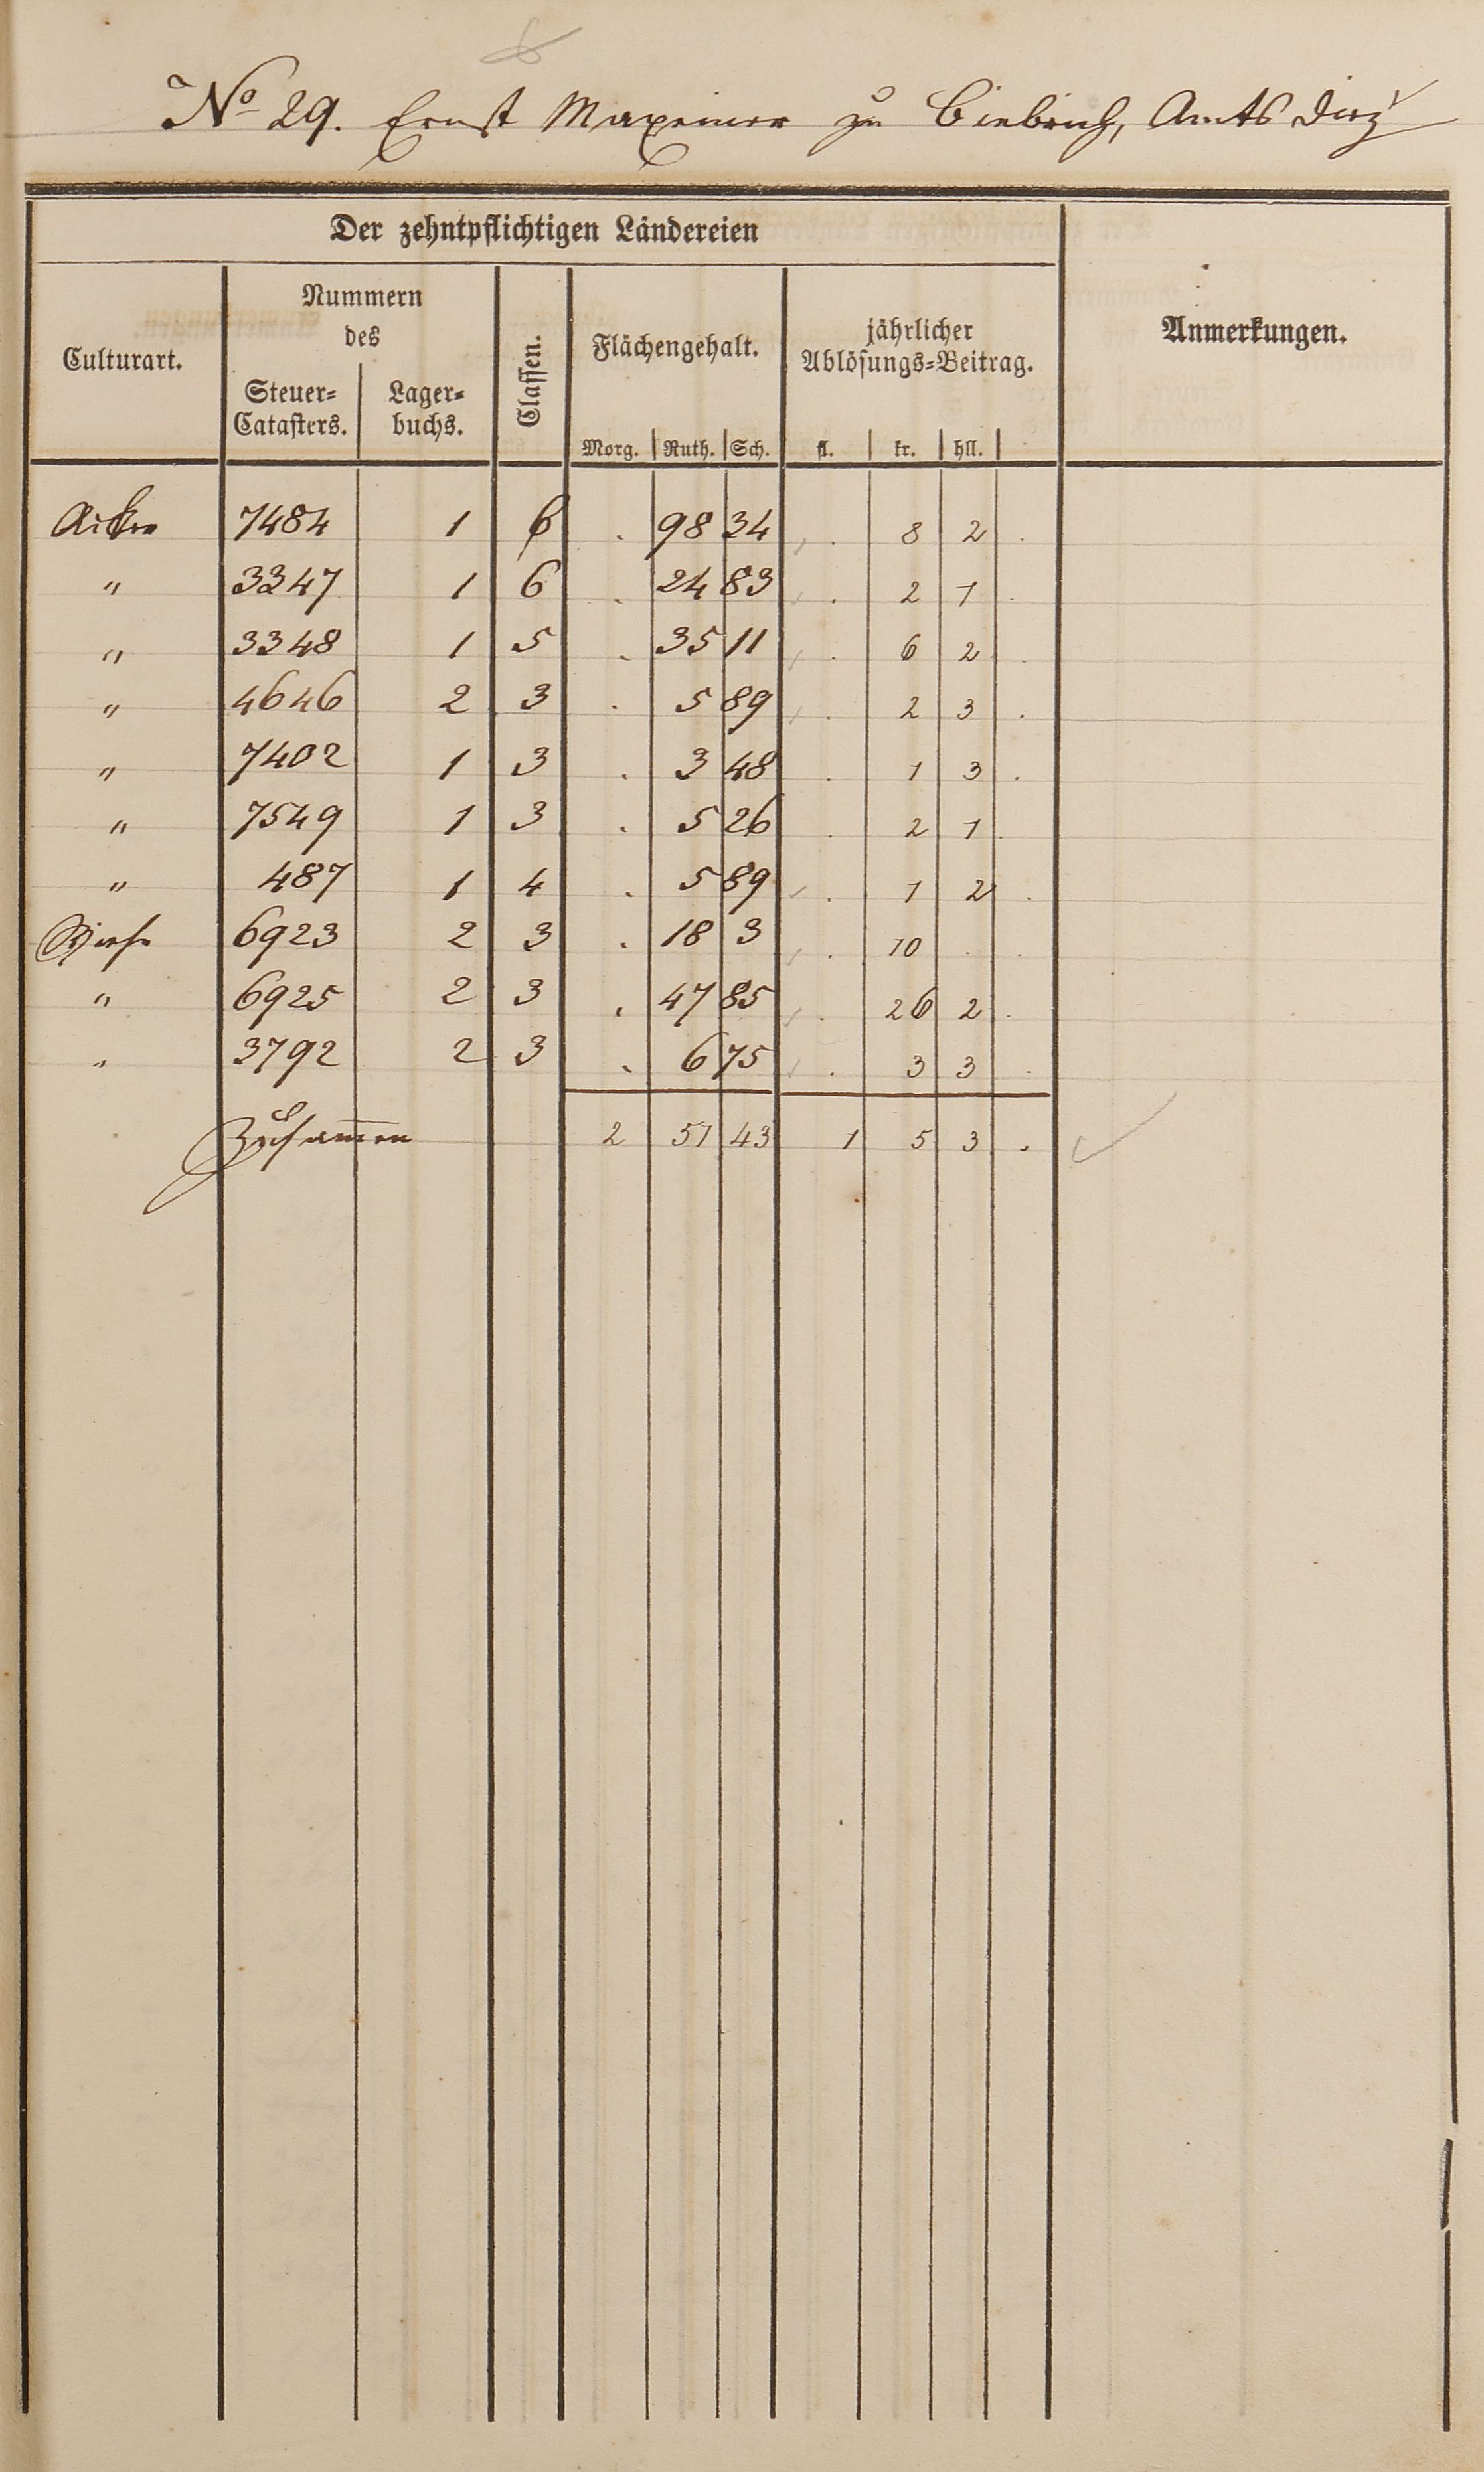 No 29. Ernst Maxeiner zu Biebrich, Amts Diez
Der zehntpflichtigen Ländereien
Culturart. Nummern des Steuer-Catasters. Lager-buchs. Classen. Flächengehalt. jährlicher Ablösungs-Beitrag. Anmerkungen.
Morg. Ruth. Sch. fl. kr. hll.
Acker 7484 1 6 . 98 34 . 8 2 .
" 3347 1 6 . 24 83 . 2 1 .
" 3348 1 5 . 35 11 . 6 2 .
" 4646 2 3 . 5 89 . 2 3 .
" 7402 1 3 . 3 48 . 1 3 .
" 7549 1 3 . 5 26 . 2 1 .
" 487 1 4 . 5 89 . 1 2 .
Wiese 6923 2 3 . 18 3 . 10 . .
" 6925 2 3 . 47 85 . 26 2 .
" 3792 2 3 . 6 75 . 3 3 .
Zusam̅en 2 51 43 1 5 3 .